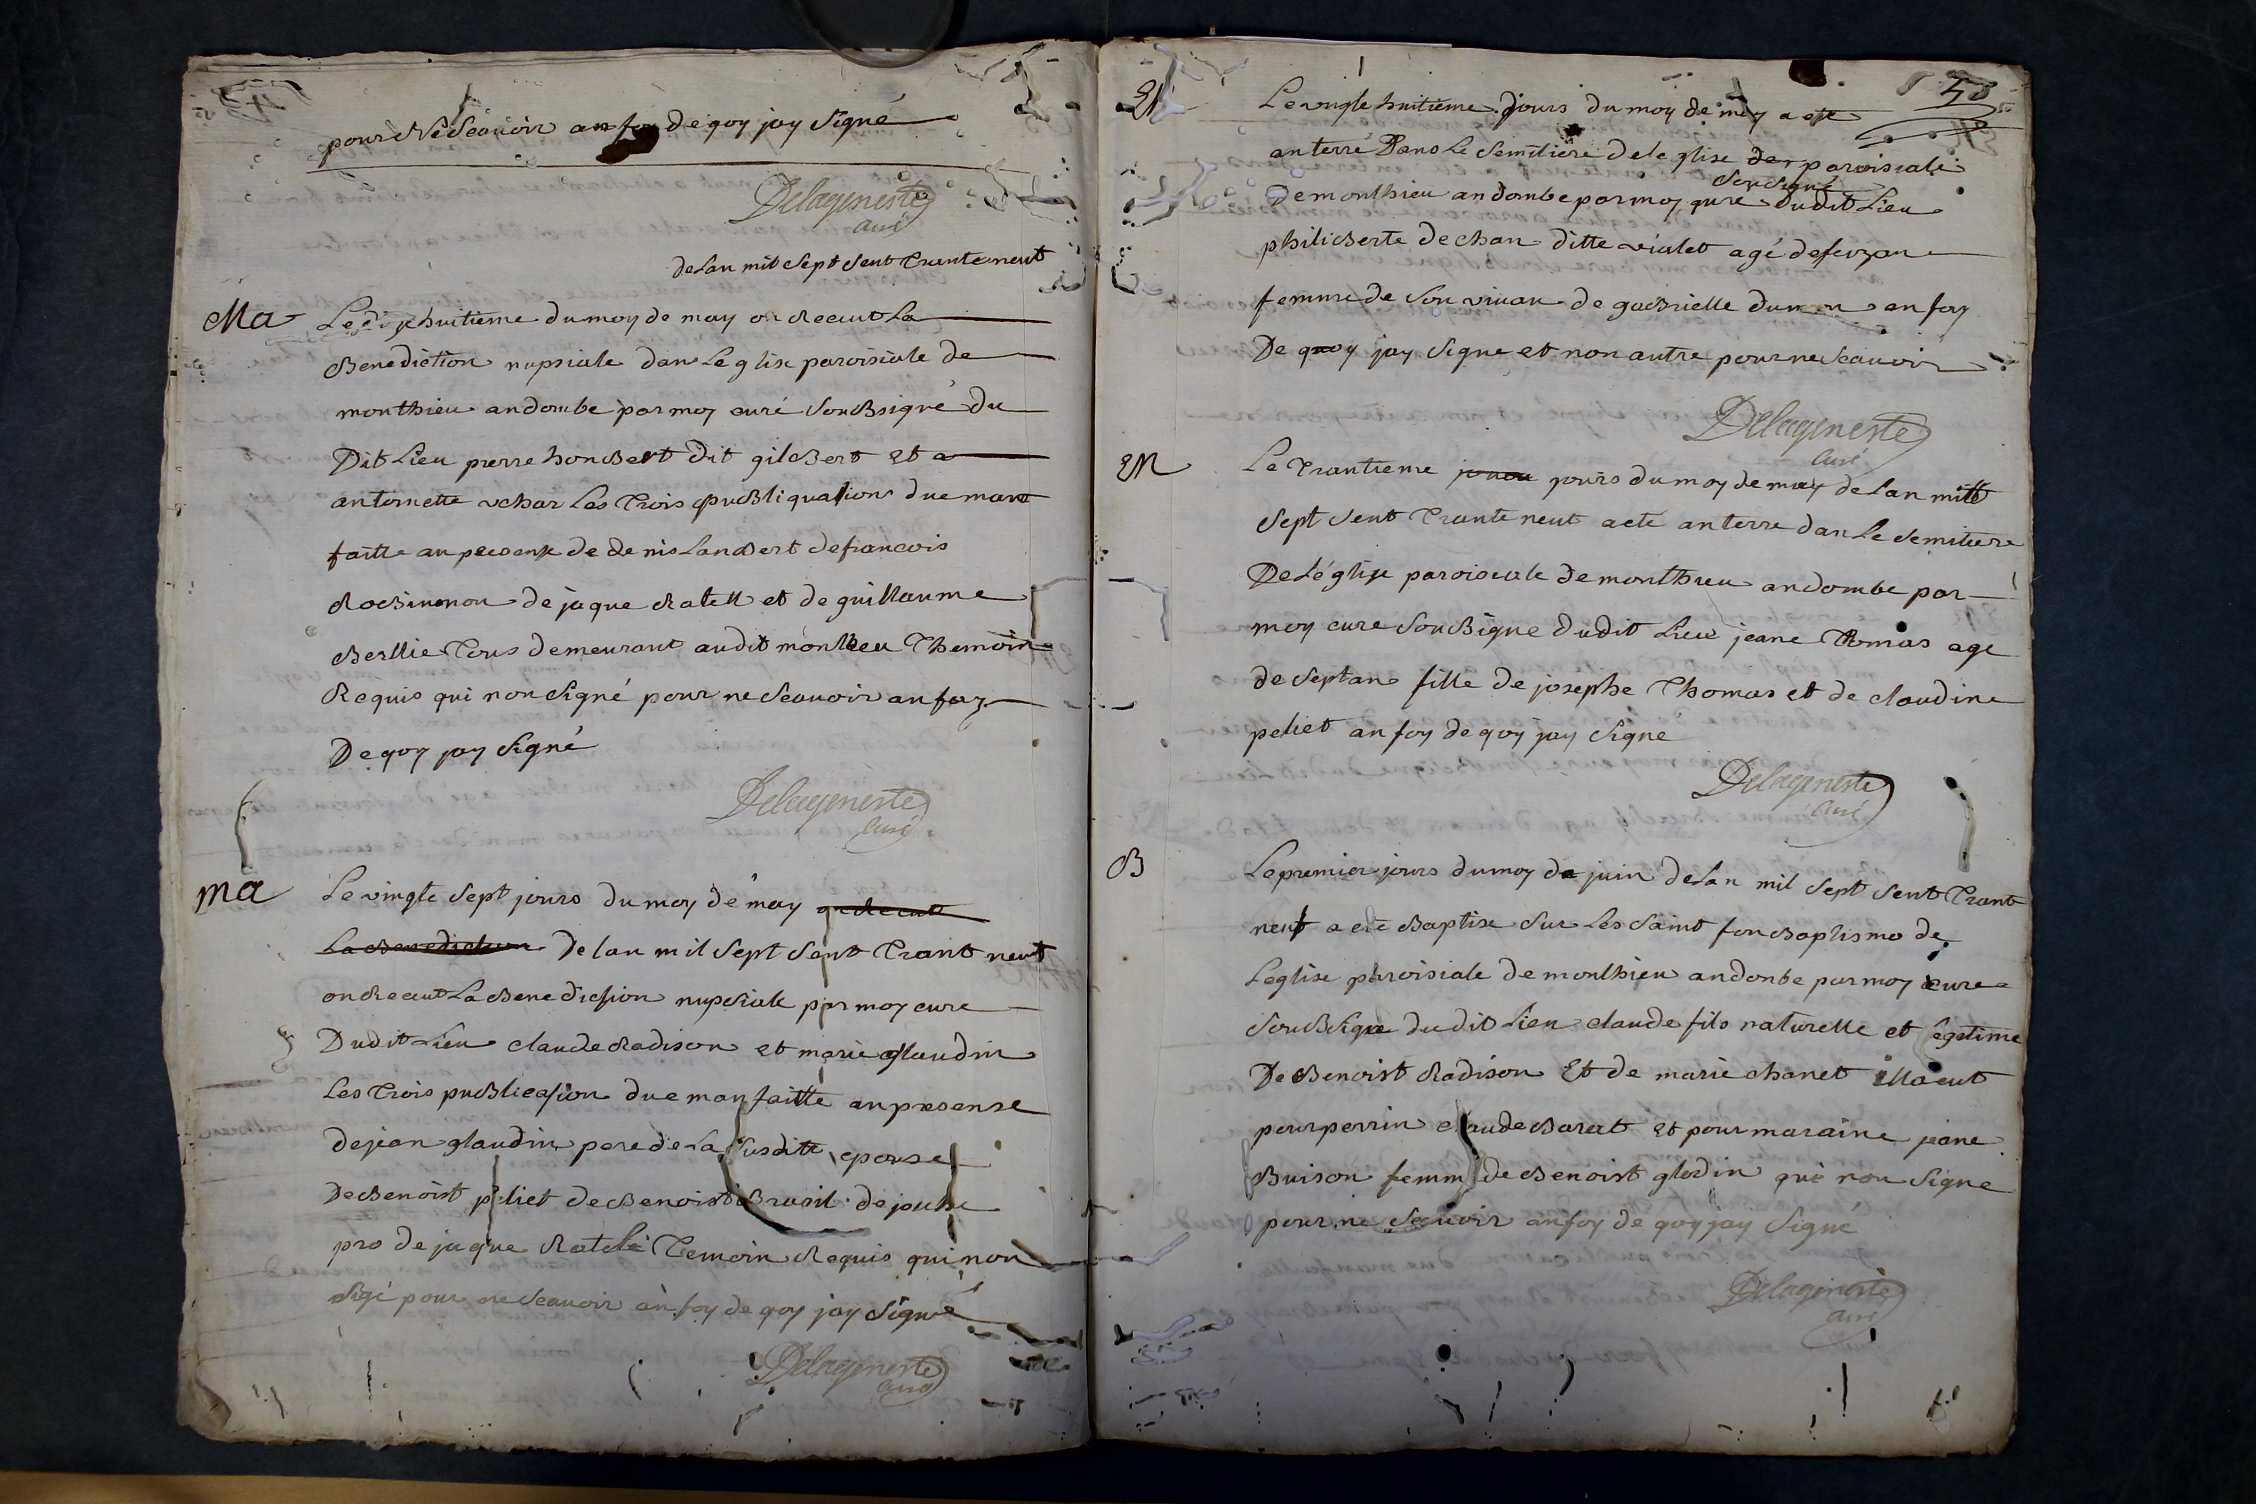 pour Ne Seauoir an foy de quoy jay Signé
Delageneste
Curé
deLan mil Sept Sent Trante neuf
Ma
Le dixhuitieme du moy de may on Receut La
Benediction nupsiale dan Leglise paroisiale de
monthieu andombe par moy curé SouBsigné du
Dit Lieu pierre honBert dit gilBert et a
antoinette vchar Les Trois puBliquations due mant
faitte an presense de denis LanBert de francois
RoBinnon de jaque Ratell et de guillaume
Berllie Tous demeurant audit monthieu Themoin
Requis qui non Signé pour ne Seauoir an foy
De quoy jay Signé
Delageneste
Curé
ma
Le vingte Sept jours du moy de may on Receut
La Benediction De lan mil Sept Sent Trant neuf
on Receut La Benediction nupsiale par moy cure
Dudit Lieu claude Radison et marie glaudin
Les Trois puBlication due man faitte an presense
de jean glaudin pere de La Susditte epouse
De Benoist peliet de Benoist Brasil de
pro de jaque Ratele Temoin Requis qui non
Sigé pour ne Seauoir an foy de quoy jay Signé
Delageneste
Curé
50
EN
Le vingte huitieme jours du moy de may a ete
anterré Dans Le Semitiere de leglise de paroisiale
SouSigné
De monthieu andombe par moy qure dudit Lieu
philiBerte dechan ditte vialet agé de
femme de Son viuan de gaBrielle dumon an foy
De quoy jay Signe et non autre pour ne Seauoir
Delageneste
Curé
EN
Le Trantieme jours du moy de may de Lan mill
Sept Sent Trante neuf a eté anterre dan Le Semitiere
De Léglise paroisiale de monthieu andombe par
moy cure SouBsigne dudit Lieu jeane Thomas age
de Septan fille de josephe Thomas et de claudine
peliet an foy de quoy jay Signé
Delageneste
Curé
B
Le premier jours du moy de juin de Lan mil Sept Sent Trant
neuf a eté Baptise Sur Les Saint fon Baptismo de
Leglise paroisiale de monthieu andonbe par moy cure
SouBsigne dudit Lieu claude fils naturelle et legetime
De Benoist Radison Et de marie chanet illa eut
pour perrin claude Barat et pour maraine jeane
Buison femme de Benoist glodin qui non Signe
pour ne Seauoir an foy de quoy jay Signé
Delageneste
Curé